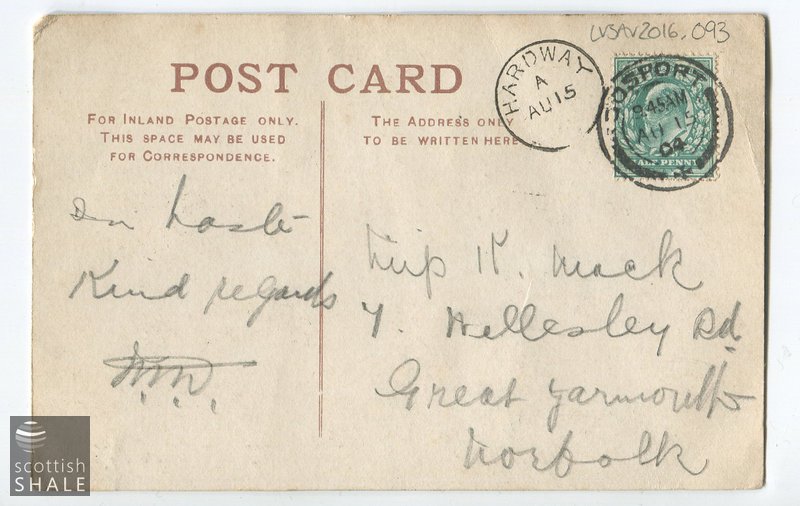 LVSAV2016.093
POST CARD
FOR INLAND POSTAGE ONLY.
THIS SPACE MAY BE USED
FOR CORRESPONDENCE.
THE ADDRESS ONLY
TO BE WRITTEN HERE
HARDWAY
A
AU 15
GOSPORT
9.45AM
AU 15
HALF PENNY
In haste
Kind regards
K. Mack
7. Wellesley Rd.
Great Yarmouth
Norfolk
scottish
SHALE